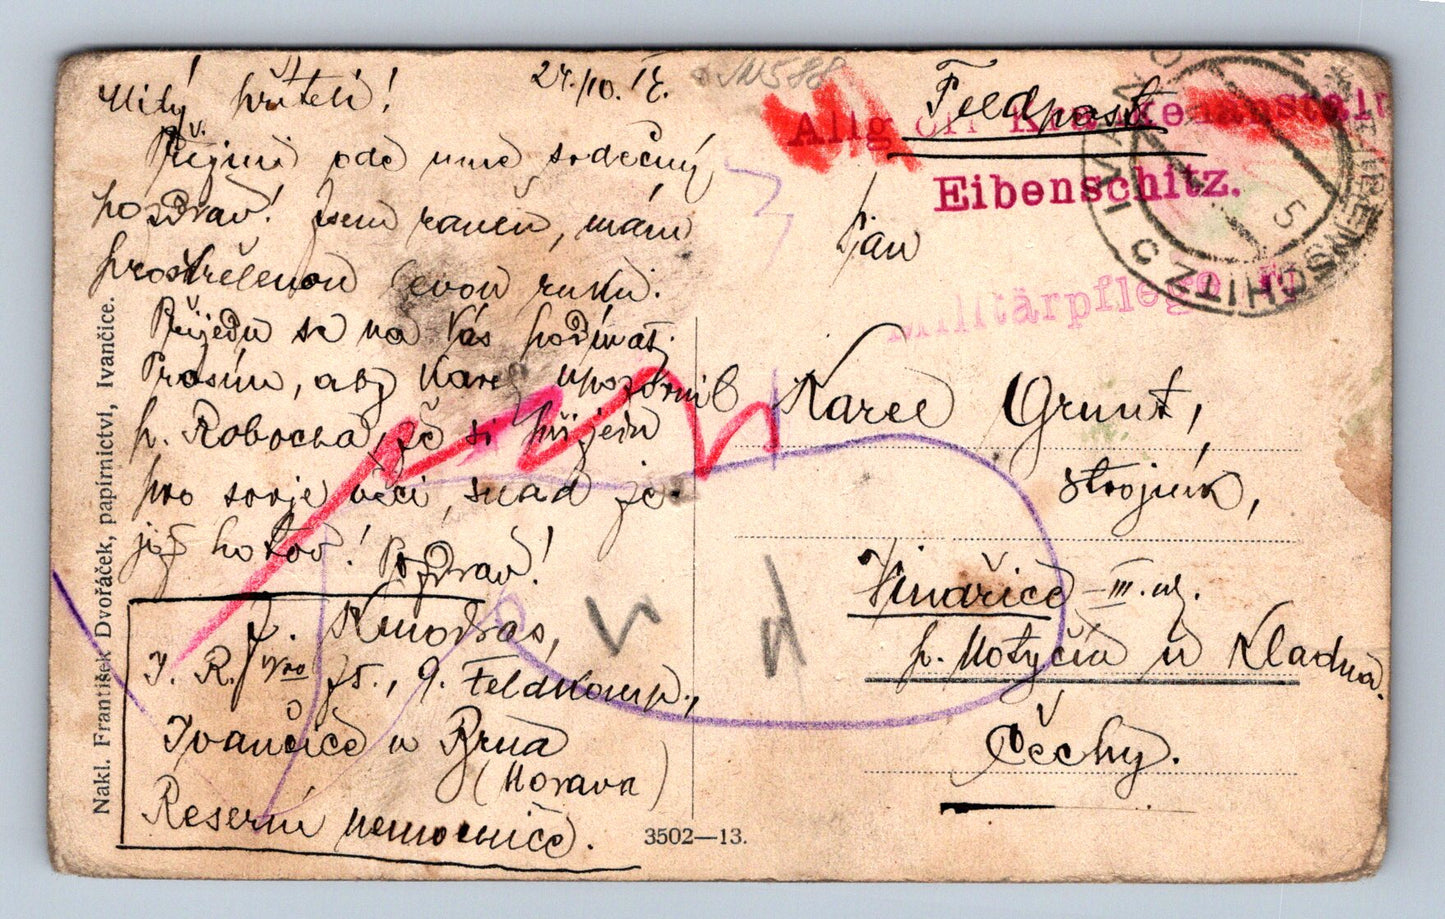 Milý příteli! 24./10. 14.
Přijmi ode mne srdečný
pozdrav! Jsem raněn, mám
prostřelenou levou ruku.
Přijedu se na Vás podívat.
Prosím, aby Karel upozornil
p. Robocha, že si přijedu
pro svoje věci, snad je
již hotov! Pozdrav!
J. R. No 75., 9. Feldkomp.,
Ivančice u Brna
(Morava)
Reservní nemocnice.
Nakl. František Dvořáček, papírnictví, Ivančice.
3502—13.
Feldpost
Allg. öff. Krankenanstalt
Eibenschitz.
Militärpflege
EIBENSCHITZ
IVANČICE
Pan
Karel Grunt,
strojník,
Vinařice – III. uj.
p. Motyčín u Kladna.
Čechy.